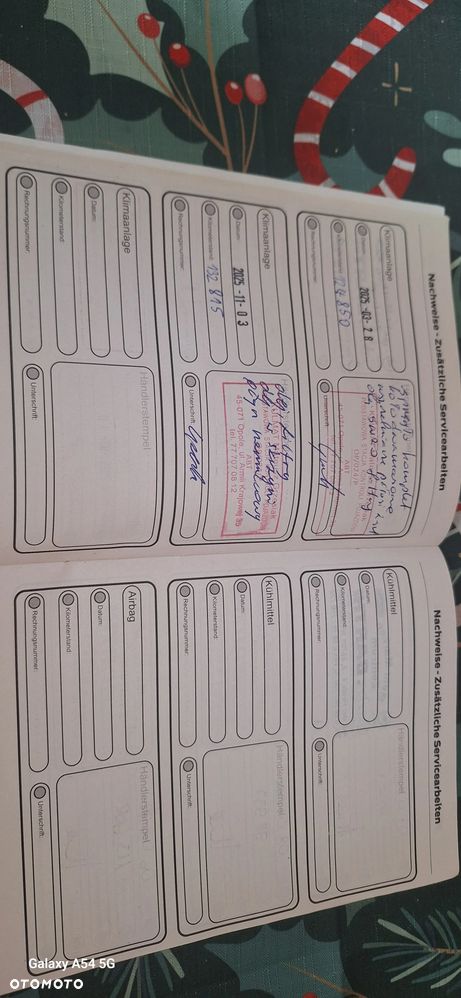 Nachweise - Zusätzliche Servicearbeiten
Klimaanlage
Datum:
2025-03-28
Kilometerstand:
124850
Rechnungsnummer:
komplet
olej
Unterschrift:
Klimaanlage
Datum:
2025-11-03
Kilometerstand:
132 815
Rechnungsnummer:
olej filtry
płyn hamulcowy
45-071 Opole, ul. Armii Krajowej 35
tel. 77 707 08 12
Unterschrift:
Klimaanlage
Datum:
Kilometerstand:
Rechnungsnummer:
Händlerstempel
Unterschrift:
Nachweise - Zusätzliche Servicearbeiten
Kühlmittel
Datum:
Kilometerstand:
Rechnungsnummer:
Händlerstempel
Unterschrift:
Kühlmittel
Datum:
Kilometerstand:
Rechnungsnummer:
Händlerstempel
Unterschrift:
Airbag
Datum:
Kilometerstand:
Rechnungsnummer:
Händlerstempel
Unterschrift:
Galaxy A54 5G
OTOMOTO